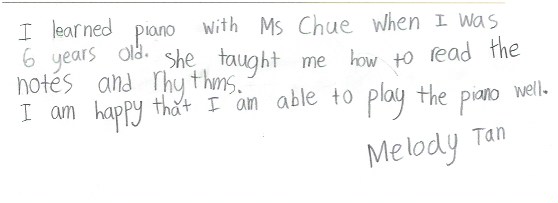 I learned piano with Ms Chue when I was
6 years old. She taught me how to read the
notes and rhythms.
I am happy that I am able to play the piano well.
Melody Tan